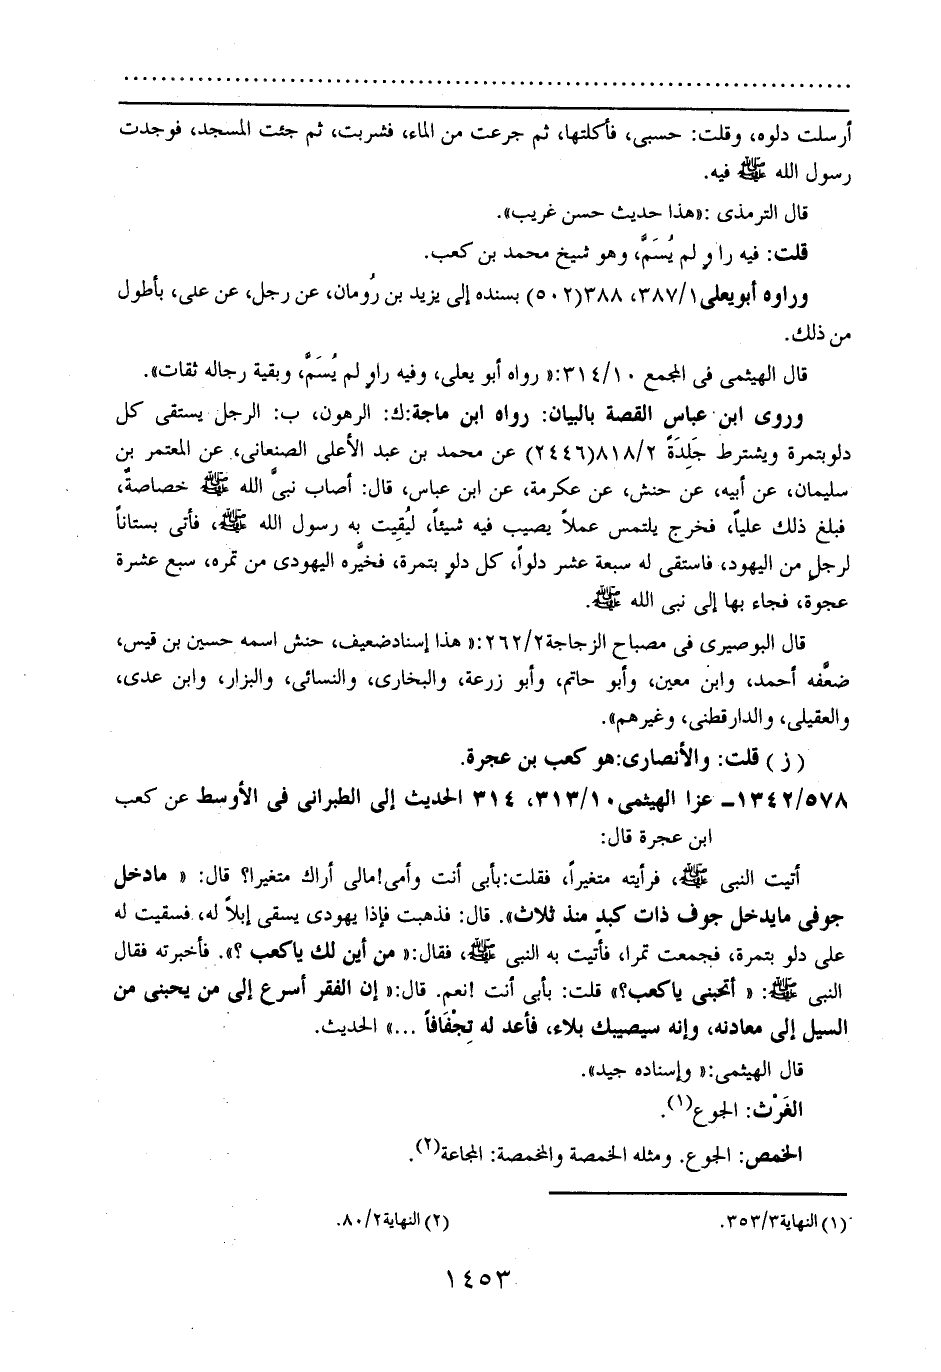 أرسلت دلوه، وقلت: حسبى، فأكلتها، ثم جرعت من الماء، فشربت، ثم جئت المسجد، فوجدت
رسول الله ﷺ فيه.
قال الترمذى :«هذا حديث حسن غريب».
قلت: فيه راوٍ لم يُسَمَّ، وهو شيخ محمد بن كعب.
وراوه أبويعلى١/٣٨٧، ٣٨٨(٥٠٢) بسنده إلى يزيد بن رُومان، عن رجل، عن على، بأطول
من ذلك.
قال الهيثمى فى المجمع ٣١٤/١٠:« رواه أبو يعلى، وفيه راوٍ لم يُسَمَّ، وبقية رجاله ثقات».
وروى ابن عباس القصة بالبيان: رواه ابن ماجة:ك: الرهون، ب: الرجل يستقى كل
دلوبتمرة ويشترط جَلِدَةً ٨١٨/٢(٢٤٤٦) عن محمد بن عبد الأعلى الصنعانى، عن المعتمر بن
سليمان، عن أبيه، عن حنش، عن عكرمة، عن ابن عباس، قال: أصاب نبىَّ الله ﷺ خصاصةٌ،
فبلغ ذلك علياً، فخرج يلتمس عملاً يصيب فيه شيئاً، ليُقِيت به رسول الله ﷺ، فأتى بستاناً
لرجلٍ من اليهود، فاستقى له سبعة عشر دلواً، كل دلوٍ بتمرة، فخيَّره اليهودى من تمره، سبع عشرة
عجوة، فجاء بها إلى نبى الله ﷺ.
قال البوصيرى فى مصباح الزجاجة٢٦٢/٢:« هذا إسنادضعيف، حنش اسمه حسين بن قيس،
ضعَّفه أحمد، وابن معين، وأبو حاتم، وأبو زرعة، والبخارى، والنسائى، والبزار، وابن عدى،
والعقيلى، والدارقطنى، وغيرهم».
( ز ) قلت: والأنصارى:هو كعب بن عجرة.
١٣٤٢/٥٧٨ـ عزا الهيثمى٣١٣/١٠، ٣١٤ الحديث إلى الطبرانى فى الأوسط عن كعب
ابن عجرة قال:
أتيت النبى ﷺ، فرأيته متغيراً، فقلت:بأبى أنت وأمى!مالى أراك متغيرا؟ قال: « مادخل
جوفى مايدخل جوف ذات كبدٍ منذ ثلاث». قال: فذهبت فإذا يهودى يسقى إبلاً له، فسقيت له
على دلو بتمرة، فجمعت تمرا، فأتيت به النبى ﷺ، فقال:« من أين لك ياكعب ؟». فأخبرته فقال
النبى ﷺ: « أتحبنى ياكعب؟» قلت: بأبى أنت !نعم. قال:« إن الفقر أسرع إلى من يحبنى من
السيل إلى معادنه، وإنه سيصيبك بلاء، فأعد له تِجْفَافاً ...» الحديث.
قال الهيثمى:« وإسناده جيد».
الغَرْث: الجوع(١).
الخمص: الجوع. ومثله الخمصة والمخمصة: المجاعة(٢).
(١) النهاية٣٥٣/٣. (٢) النهاية٨٠/٢.
١٤٥٣